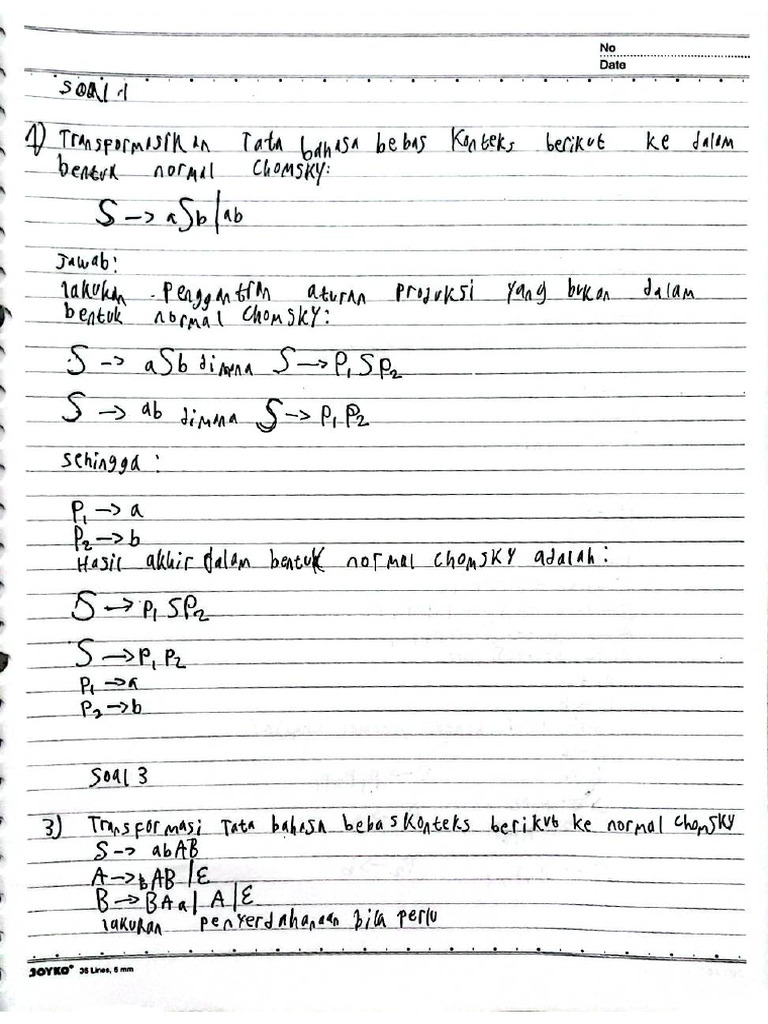 No
Date
SOAL 1
1) Transformasikan Tata bahasa bebas Konteks berikut ke dalam
bentuk normal CHOMSKY:
S -> aSb | ab
Jawab:
lakukan penggantian aturan produksi yang bukan dalam
bentuk normal CHOMSKY:
S -> aSb dimana S -> P₁ S P₂
S -> ab dimana S -> P₁ P₂
sehingga :
P₁ -> a
P₂ -> b
Hasil akhir dalam bentuk normal CHOMSKY adalah :
S -> P₁ SP₂
S -> P₁ P₂
P₁ -> a
P₂ -> b
SOAL 3
3) Transformasi Tata bahasa bebas Konteks berikut ke normal CHOMSKY
S -> abAB
A -> bAB | ε
B -> BAa | A | ε
lakukan penyerdahanaan bila perlu
JOYKO® 36 Lines, 6 mm